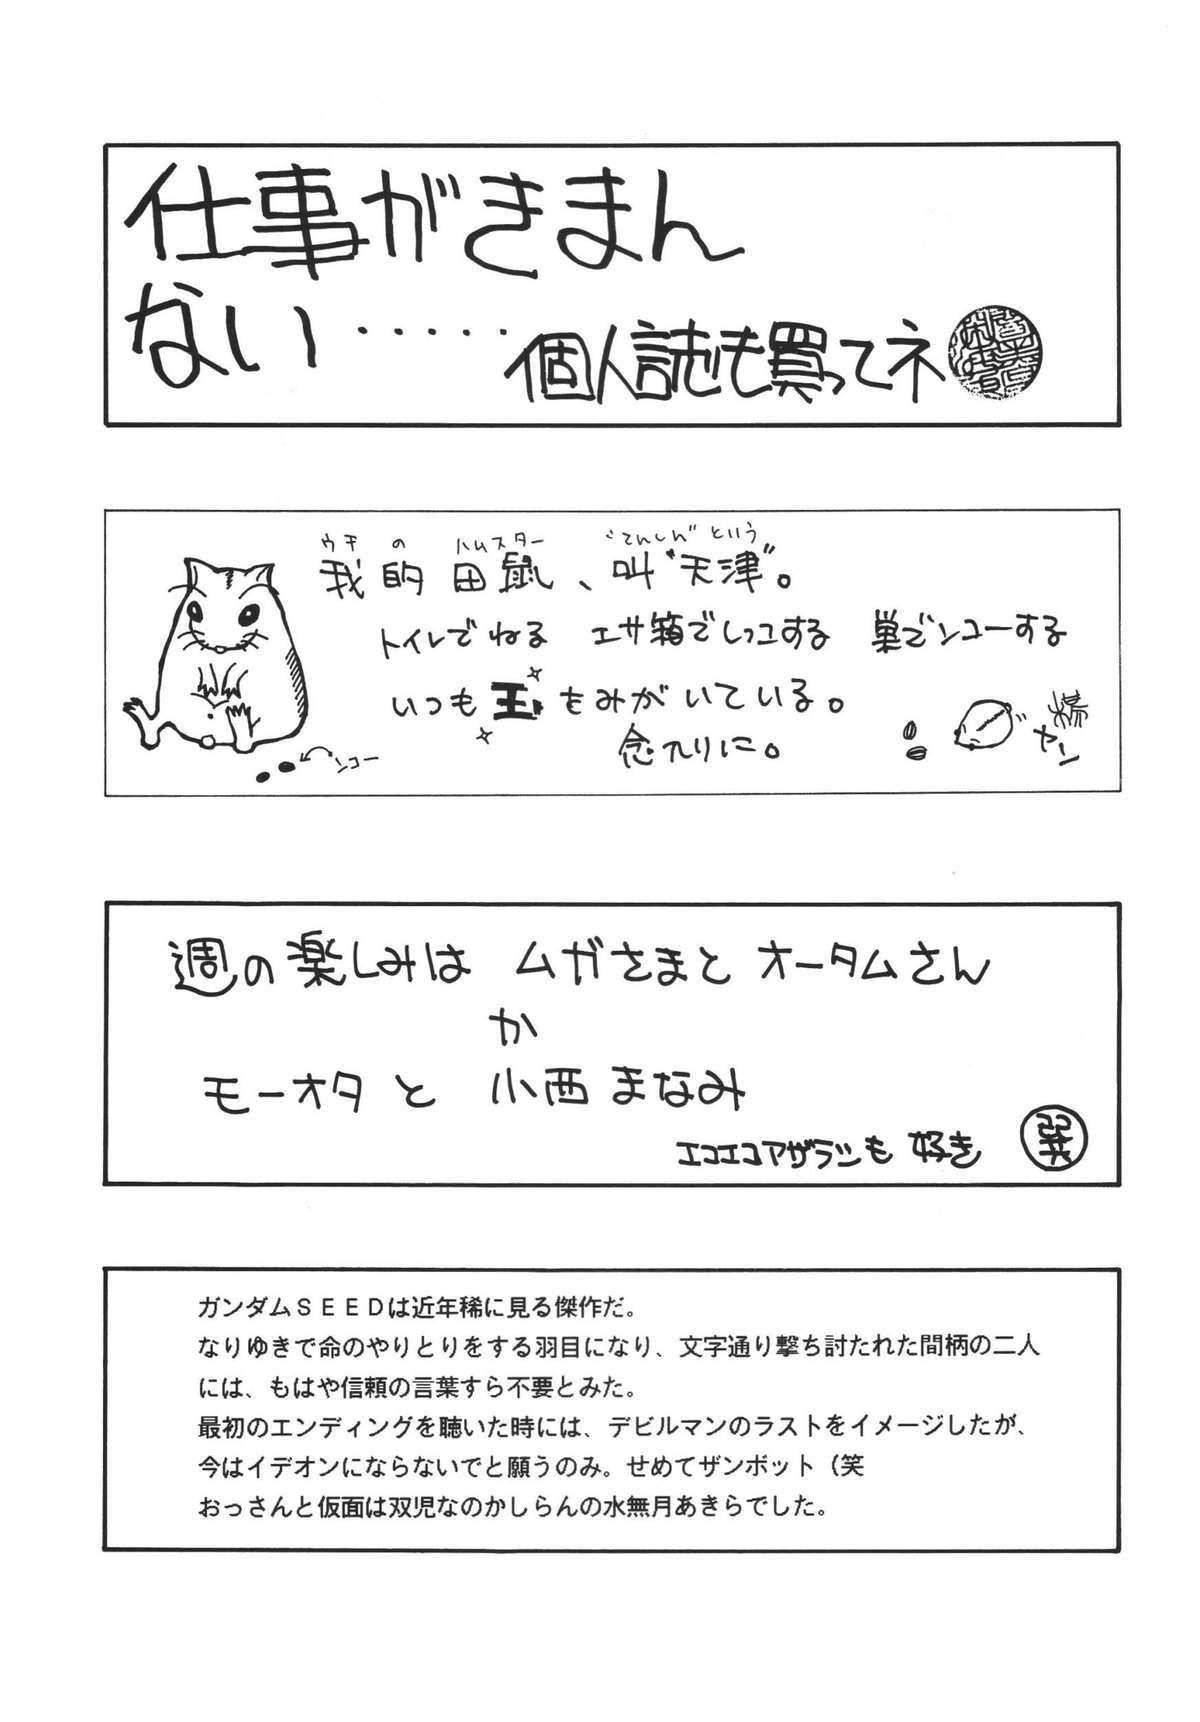 仕事がきまん
ない・・・・・個人誌も買ってネ
ウチ の ハムスター "てんしん"という
我的田鼠、叫"天津"。
トイレでねる エサ箱でしっコする 巣でンコーする
いつも玉をみがいている。
念入りに。
ンコー
楊
ヤン
週の楽しみは ムガさまと オータムさん
か
モーオタと 小西まなみ
エコエコアザラシも 好き
巽
ガンダムＳＥＥＤは近年稀に見る傑作だ。
なりゆきで命のやりとりをする羽目になり、文字通り撃ち討たれた間柄の二人
には、もはや信頼の言葉すら不要とみた。
最初のエンディングを聴いた時には、デビルマンのラストをイメージしたが、
今はイデオンにならないでと願うのみ。せめてザンボット（笑
おっさんと仮面は双児なのかしらんの水無月あきらでした。